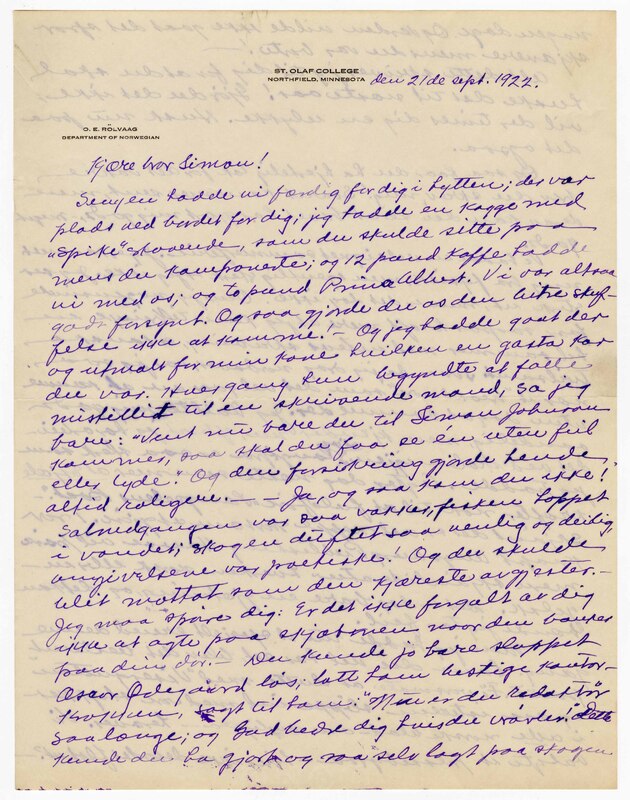 ST. OLAF COLLEGE
NORTHFIELD, MINNESOTA
den 21de sept. 1922.
O. E. RÖLVAAG
DEPARTMENT OF NORWEGIAN
Kjære bror Simon!
Sengen hadde vi færdig for dig i hytten; der var
plads ved bordet for dig; jeg hadde en kagge med
"spike" staaende, som du skulde sitte paa
mens du komponerte; og 12 pund kaffe hadde
vi med os; og to pund Prins Albert. Vi var altsaa
godt forsynt. Og saa gjorde du os den bitre skuf-
felse ikke at komme! — Og jeg hadde gaat der
og utmalt for min kone hvilken en gasta kar
du var. Hver gang hun begyndte at fatte
mistillit til en skrivende mand, sa jeg
bare: "Vent nu bare du til Simon Johnson
kommer, saa skal du faa se én uten feil
eller lyde." Og den forsikring gjorde hende
altid roligere. — — Ja, og saa kom du ikke!
Solnedgangen var saa vakker, fisken hoppet
i vandet; skogen duftet saa venlig og deilig,
omgivelsene var poetiske! Og du skulde
blit mottat som den kjæreste av gjester. —
Jeg maa spøre dig: Er det ikke forgalt av dig
ikke at agte paa skjæbnen naar den banker
paa din dør! — Du kunde jo bare sloppet
Oscar Ødegaard løs, latt ham bestige kontor-
krakken, sagt til ham: "Nu er du redaktør
saalænge; og Gud bedre dig hvis du vrøvler!" Dette
kunde du ha gjort og saa selv lagt paa skogen